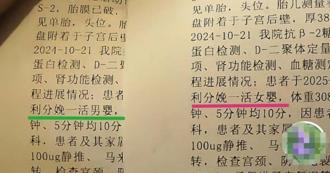 S-2，胎膜已破，
见单胎，头位，脐
盘附着于子宫后壁
2024-10-21 我院
蛋白检测、D-二
项、肾功能检测、
程进展情况；患者
利分娩一活男婴，
钟、5分钟均10分
科，患者及其家属
100ug静推、马来
见单胎，头位，
盘附着于子宫后壁，厚38
2024-10-21 我院抗β-2糖
蛋白检测、D-二聚体定量
项、肾功能检测、血糖测定
程进展情况：患者于2025
利分娩一活女婴，体重308
钟、5分钟均10分，因患者
科，患者及其家属
100ug静推、
钟，检查宫颈、阴